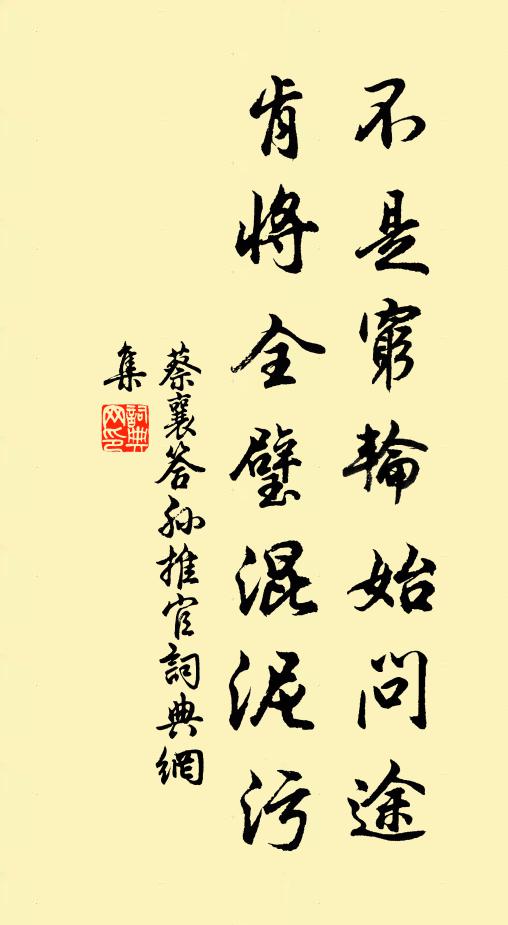 不是窮輪始問途
肯將全璧混泥污
蔡襄答孫推官詞典網
集
詞典
网印